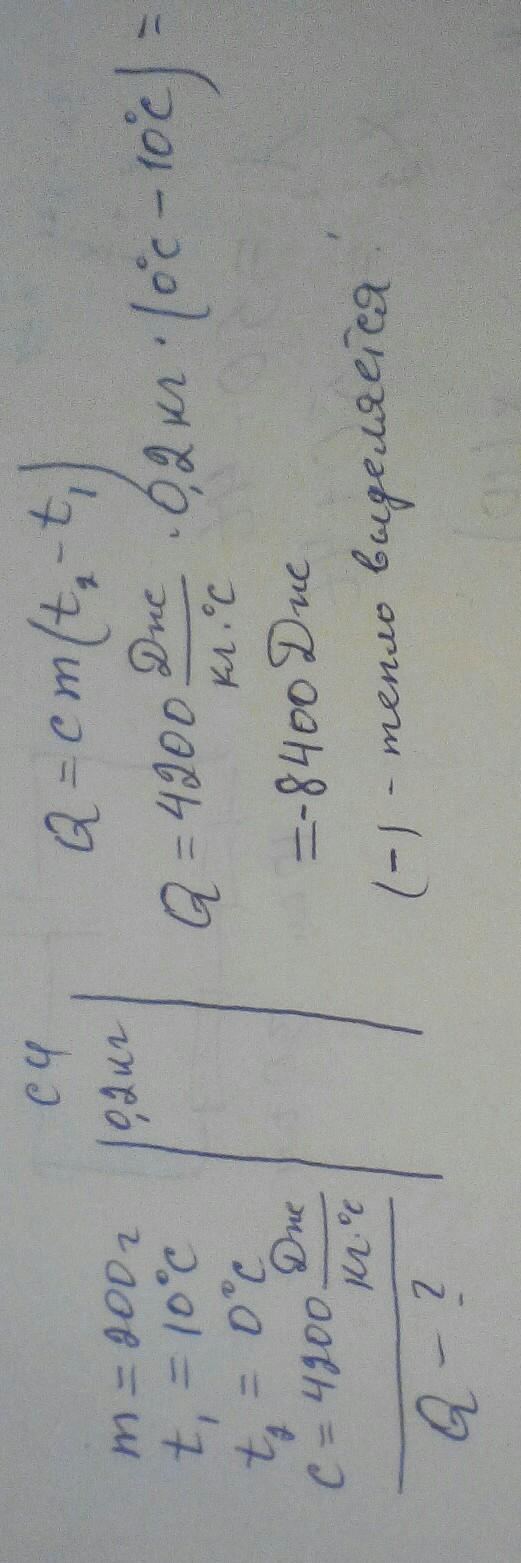 m = 200 г
t₁ = 10°C
t₂ = 0°C
c = 4200 Дж/кг·°C
Q - ?
СИ
0,2 кг
Q = c m (t₂ - t₁)
Q = 4200 Дж/кг·°C · 0,2 кг · (0°C - 10°C) =
= -8400 Дж
(-) - тепло выделяется.